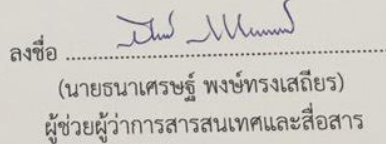 ลงชื่อ ........................................................
(นายธนาเศรษฐ์ พงษ์ทรงเสถียร)
ผู้ช่วยผู้ว่าการสารสนเทศและสื่อสาร